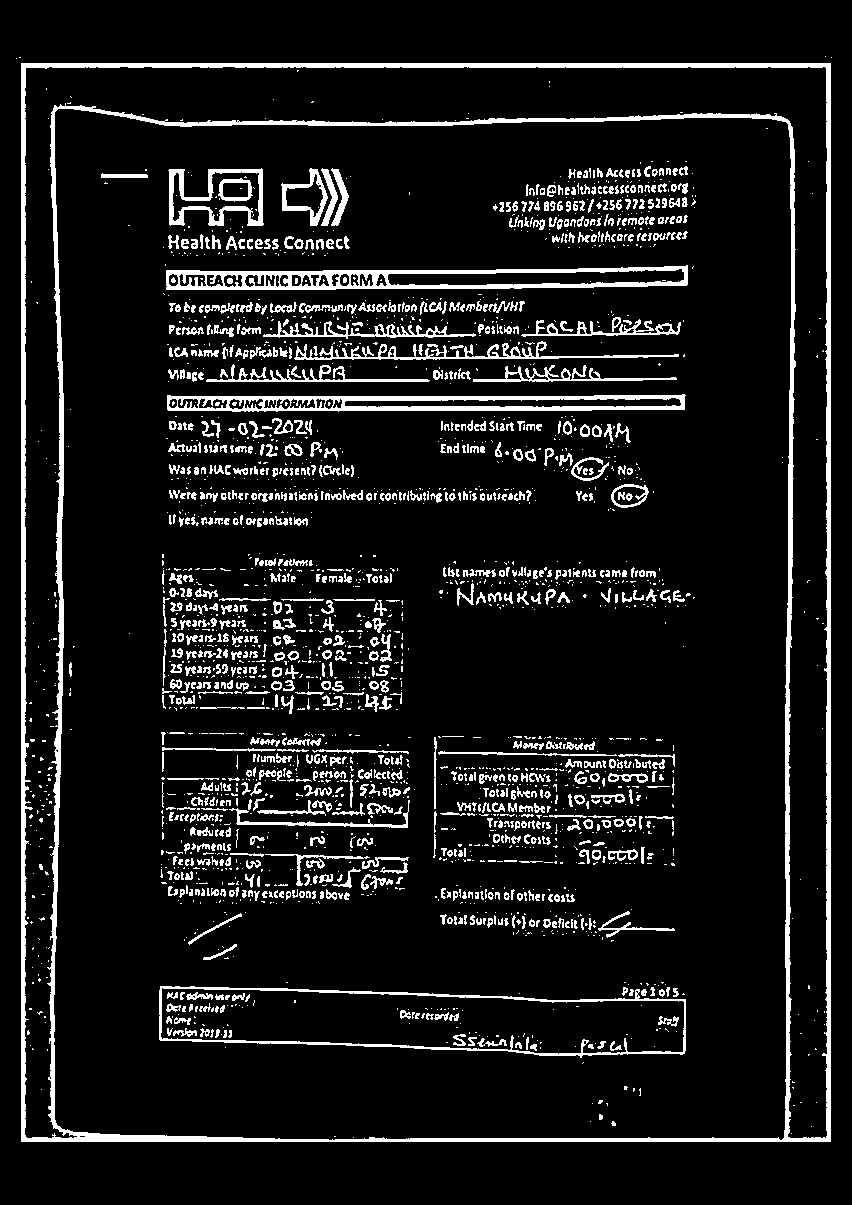 Health Access Connect
Health Access Connect
info@healthaccessconnect.org
+256 774 896 962 / +256 772 529648
Linking Ugandans in remote areas
with healthcare resources
OUTREACH CLINIC DATA FORM A
To be completed by Local Community Association (LCA) Members/VHT
Person filling form KASIRYE Position FOCAL PERSON
LCA name (if Applicable) NAMUKUPA HEALTH GROUP
Village NAMUKUPA District MUKONO
OUTREACH CLINIC INFORMATION
Date 27-02-2024 Intended Start Time 10:00AM
Actual start time 12:00 P.M End time 6:00 P.M
Was an HAC worker present? (Circle) Yes No
Were any other organisations involved or contributing to this outreach? Yes No
If yes, name of organisation
Total Patients
Ages Male Female Total
0-28 days
29 days-4 years 02 3 4
5 years-9 years 03 4 07
10 years-18 years 02 02 04
19 years-24 years 00 02 02
25 years-59 years 04 11 15
60 years and up 03 05 08
Total 14 27
List names of village's patients came from
NAMUKUPA VILLAGE
Money Collected
Number of people UGX per person Total Collected
Adults 26 2000 52,000
Children 15 1000 15000
Exceptions:
Reduced payments 00 00 00
Fees waived 00 00 00
Total 41 67000
Explanation of any exceptions above
Money Distributed
Amount Distributed
Total given to HCWs 60,000/=
Total given to VHTs/LCA Member 10,000/=
Transporters 20,000/=
Other Costs
Total 90,000/=
Explanation of other costs
Total Surplus (+) or Deficit (-):
Page 1 of 5
HAC admin use only
Date Received Date recorded Staff
Name
Pascal